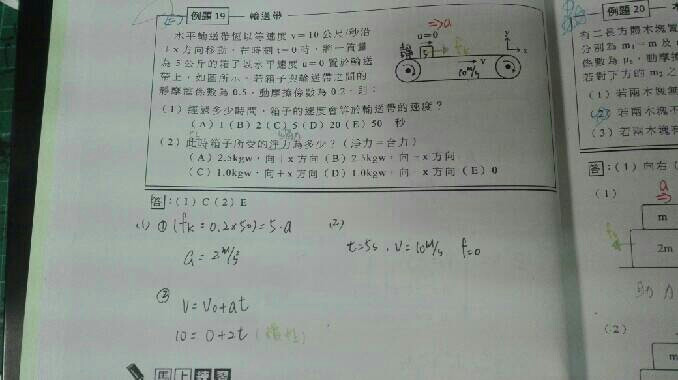 例題19 輸送帶
水平輸送帶恆以等速度 v=10 公尺/秒沿
+x 方向移動,在時刻 t=0 時,將一質量
為 5 公斤的箱子以水平速度 u=0 置於輸送
帶上,如圖所示。若箱子與輸送帶之間的
靜摩擦係數為 0.5,動摩擦係數為 0.2,則:
(1) 經過多少時間,箱子的速度會等於輸送帶的速度?
(A) 1 (B) 2 (C) 5 (D) 20 (E) 50 秒
(2) 此時箱子所受的淨力為多少?(淨力=合力)
(A) 2.5kgw,向+x 方向 (B) 2.5kgw,向-x 方向
(C) 1.0kgw,向+x 方向 (D) 1.0kgw,向 x 方向 (E) 0
⇒a
u=0
5
fk
v
10m/s
y
x
z
答:(1) C (2) E
(1) ① (fk = 0.2×50) = 5·a
a = 2 m/s
② V = V0 + at
10 = 0 + 2t
(2)
t=5s, V=10m/s f=0
馬上練習
例題20
有二長方體木塊質
分別為 m1=m 及
係數為 μ,動摩擦
若對下方的 m2 之
(1) 若兩木塊無
(2) 若兩木塊不
(3) 若兩木塊有
答:(1) 向右
(1)
a
m
2m
(2)
m